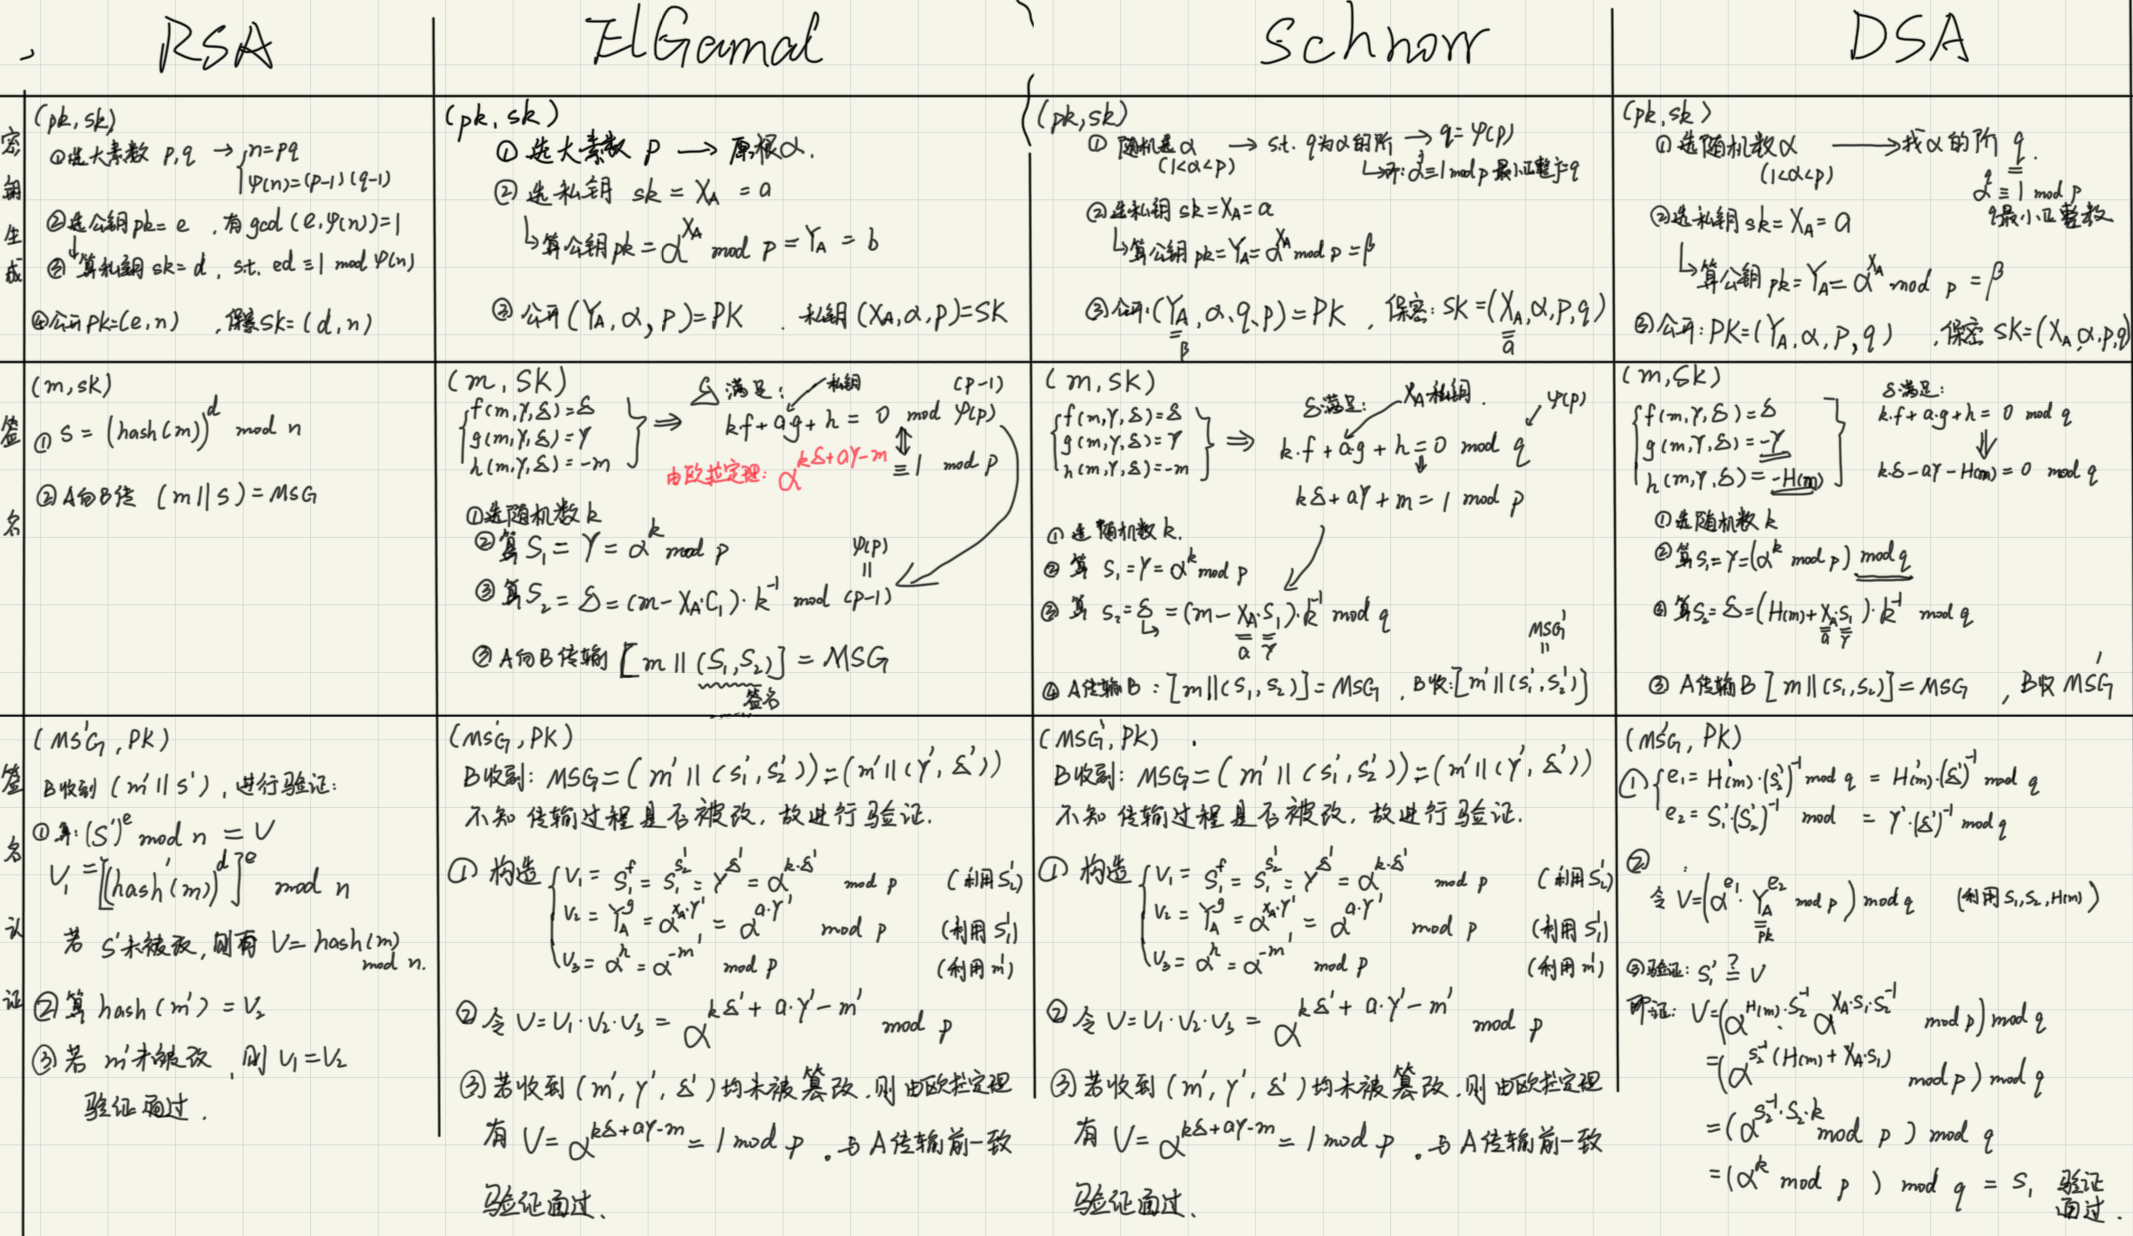 RSA
ElGamal
Schnorr
DSA
密钥生成
(pk, sk)
①选大素数 p,q → { n=pq
φ(n)=(p-1)(q-1)
②选公钥pk=e , 有gcd(e,φ(n))=1
③算私钥sk=d, s.t. ed≡1 mod φ(n)
④公开PK=(e,n) , 保密SK=(d,n)
(pk, sk)
①选大素数 p → 原根α.
②选私钥 sk = X_A = a
↳算公钥pk=α^X_A mod p = Y_A = b
③公开(Y_A,α,p)=PK . 私钥(X_A,α,p)=SK
(pk,sk)
① 随机选α → s.t. q为α的阶 → q=φ(p)
(1<α<p)
②选私钥sk=X_A=a
↳算公钥pk=Y_A=α^X_A mod p=β
③公开:(Y_A,α,q,p)=PK , 保密:SK=(X_A,α,p,q)
β
a
(pk,sk)
①选随机数α → 找α的阶 q.
(1<α<p)
α^q≡1 mod p
q最小正整数
②选私钥sk=X_A=a
↳算公钥pk=Y_A=α^X_A mod p =β
③公开:PK=(Y_A,α,p,q) ,保密SK=(X_A,α,p,q)
签名
(m,sk)
①S=(hash(m))^d mod n
②A向B传 (m||S)=MSG
(m,SK)
{ f(m,γ,δ)=δ
g(m,γ,δ)=γ
h(m,γ,δ)=-m } ⇒
δ满足: 私钥 (p-1)
kf+ag+h= 0 mod φ(p)
由欧拉定理: α^(kδ+aγ-m) ≡1 mod p
①选随机数k
②算S₁=γ=α^k mod p
φ(p)
||
③算S₂=δ=(m-X_A·C₁)·k⁻¹ mod (p-1)
③A向B传输[m||(S₁,S₂)]=MSG
签名
(m,SK)
{ f(m,γ,δ)=δ
g(m,γ,δ)=γ
h(m,γ,δ)=-m } ⇒
δ满足: X_A私钥. φ(p)
k·f+a·g+h=0 mod q
kδ+aγ+m=1 mod p
①选随机数k.
②算 S₁=γ=α^k mod p
③算 S₂=δ=(m-X_A·S₁)·k⁻¹ mod q
a γ
MSG'
||
④A传输B:[m||(S₁,S₂)]=MSG , B收:[m'||(S₁',S₂')]
(m,SK)
{ f(m,γ,δ)=δ
g(m,γ,δ)=-γ
h(m,γ,δ)=-H(m) }
δ满足:
k·f+a·g+h=0 mod q
kδ-aγ-H(m)=0 mod q
①选随机数k
②算S₁=γ=(α^k mod p) mod q
算S₂=δ=(H(m)+X_A·S₁)·k⁻¹ mod q
a γ
③A传输B[m||(S₁,S₂)]=MSG , B收MSG'
签名认证
(MSG',PK)
B收到(m'||S'),进行验证:
①算:(S')^e mod n = V
V₁=[(hash'(m))^d]^e mod n
若 S'未被改,则有V=hash(m) mod n.
②算hash(m')=V₂
③若 m'未被改,则V₁=V₂
验证通过.
(MSG',PK)
B收到:MSG=(m'||(S₁',S₂'))=(m'||(γ',δ'))
不知传输过程是否被改,故进行验证.
①构造{ V₁=S₁^f=S₁^S₂'=γ^δ'=α^(k·δ') mod p (利用S₂')
V₂=Y_A^g=α^(X_A·γ')=α^(a·γ') mod p (利用S₁')
V₃=α^h=α^(-m') mod p (利用m')
②令V=V₁·V₂·V₃=α^(kδ'+a·γ'-m') mod p
③若收到(m',γ',δ')均未被篡改,则由欧拉定理
有V=α^(kδ+aγ-m)=1 mod p 。与A传输前一致
验证通过.
(MSG',PK)
B收到:MSG=(m'||(S₁',S₂'))=(m'||(γ',δ'))
不知传输过程是否被改,故进行验证.
①构造{ V₁=S₁^f=S₁^S₂'=γ^δ'=α^(k·δ') mod p (利用S₂')
V₂=Y_A^g=α^(X_A·γ')=α^(a·γ') mod p (利用S₁')
V₃=α^h=α^(-m') mod p (利用m')
②令V=V₁·V₂·V₃=α^(kδ'+a·γ'-m') mod p
③若收到(m',γ',δ')均未被篡改,则由欧拉定理
有V=α^(kδ+aγ-m)=1 mod p 。与A传输前一致
验证通过.
(MSG',PK)
①{ e₁=H'(m)·(S₂')⁻¹ mod q = H'(m)·(δ')⁻¹ mod q
e₂=S₁'·(S₂')⁻¹ mod = γ'·(δ')⁻¹ mod q
②
令V=(α^e₁·Y_A^e₂ mod p) mod q (利用S₁,S₂,H(m))
pk
③验证:S₁'≟V
V=(α^(H(m)·S₂⁻¹)·α^(X_A·S₁·S₂⁻¹) mod p) mod q
=(α^(S₂⁻¹(H(m)+X_A·S₁)) mod p) mod q
=(α^(S₂⁻¹·S₂·k) mod p) mod q
=(α^k mod p) mod q = S₁ 验证通过.